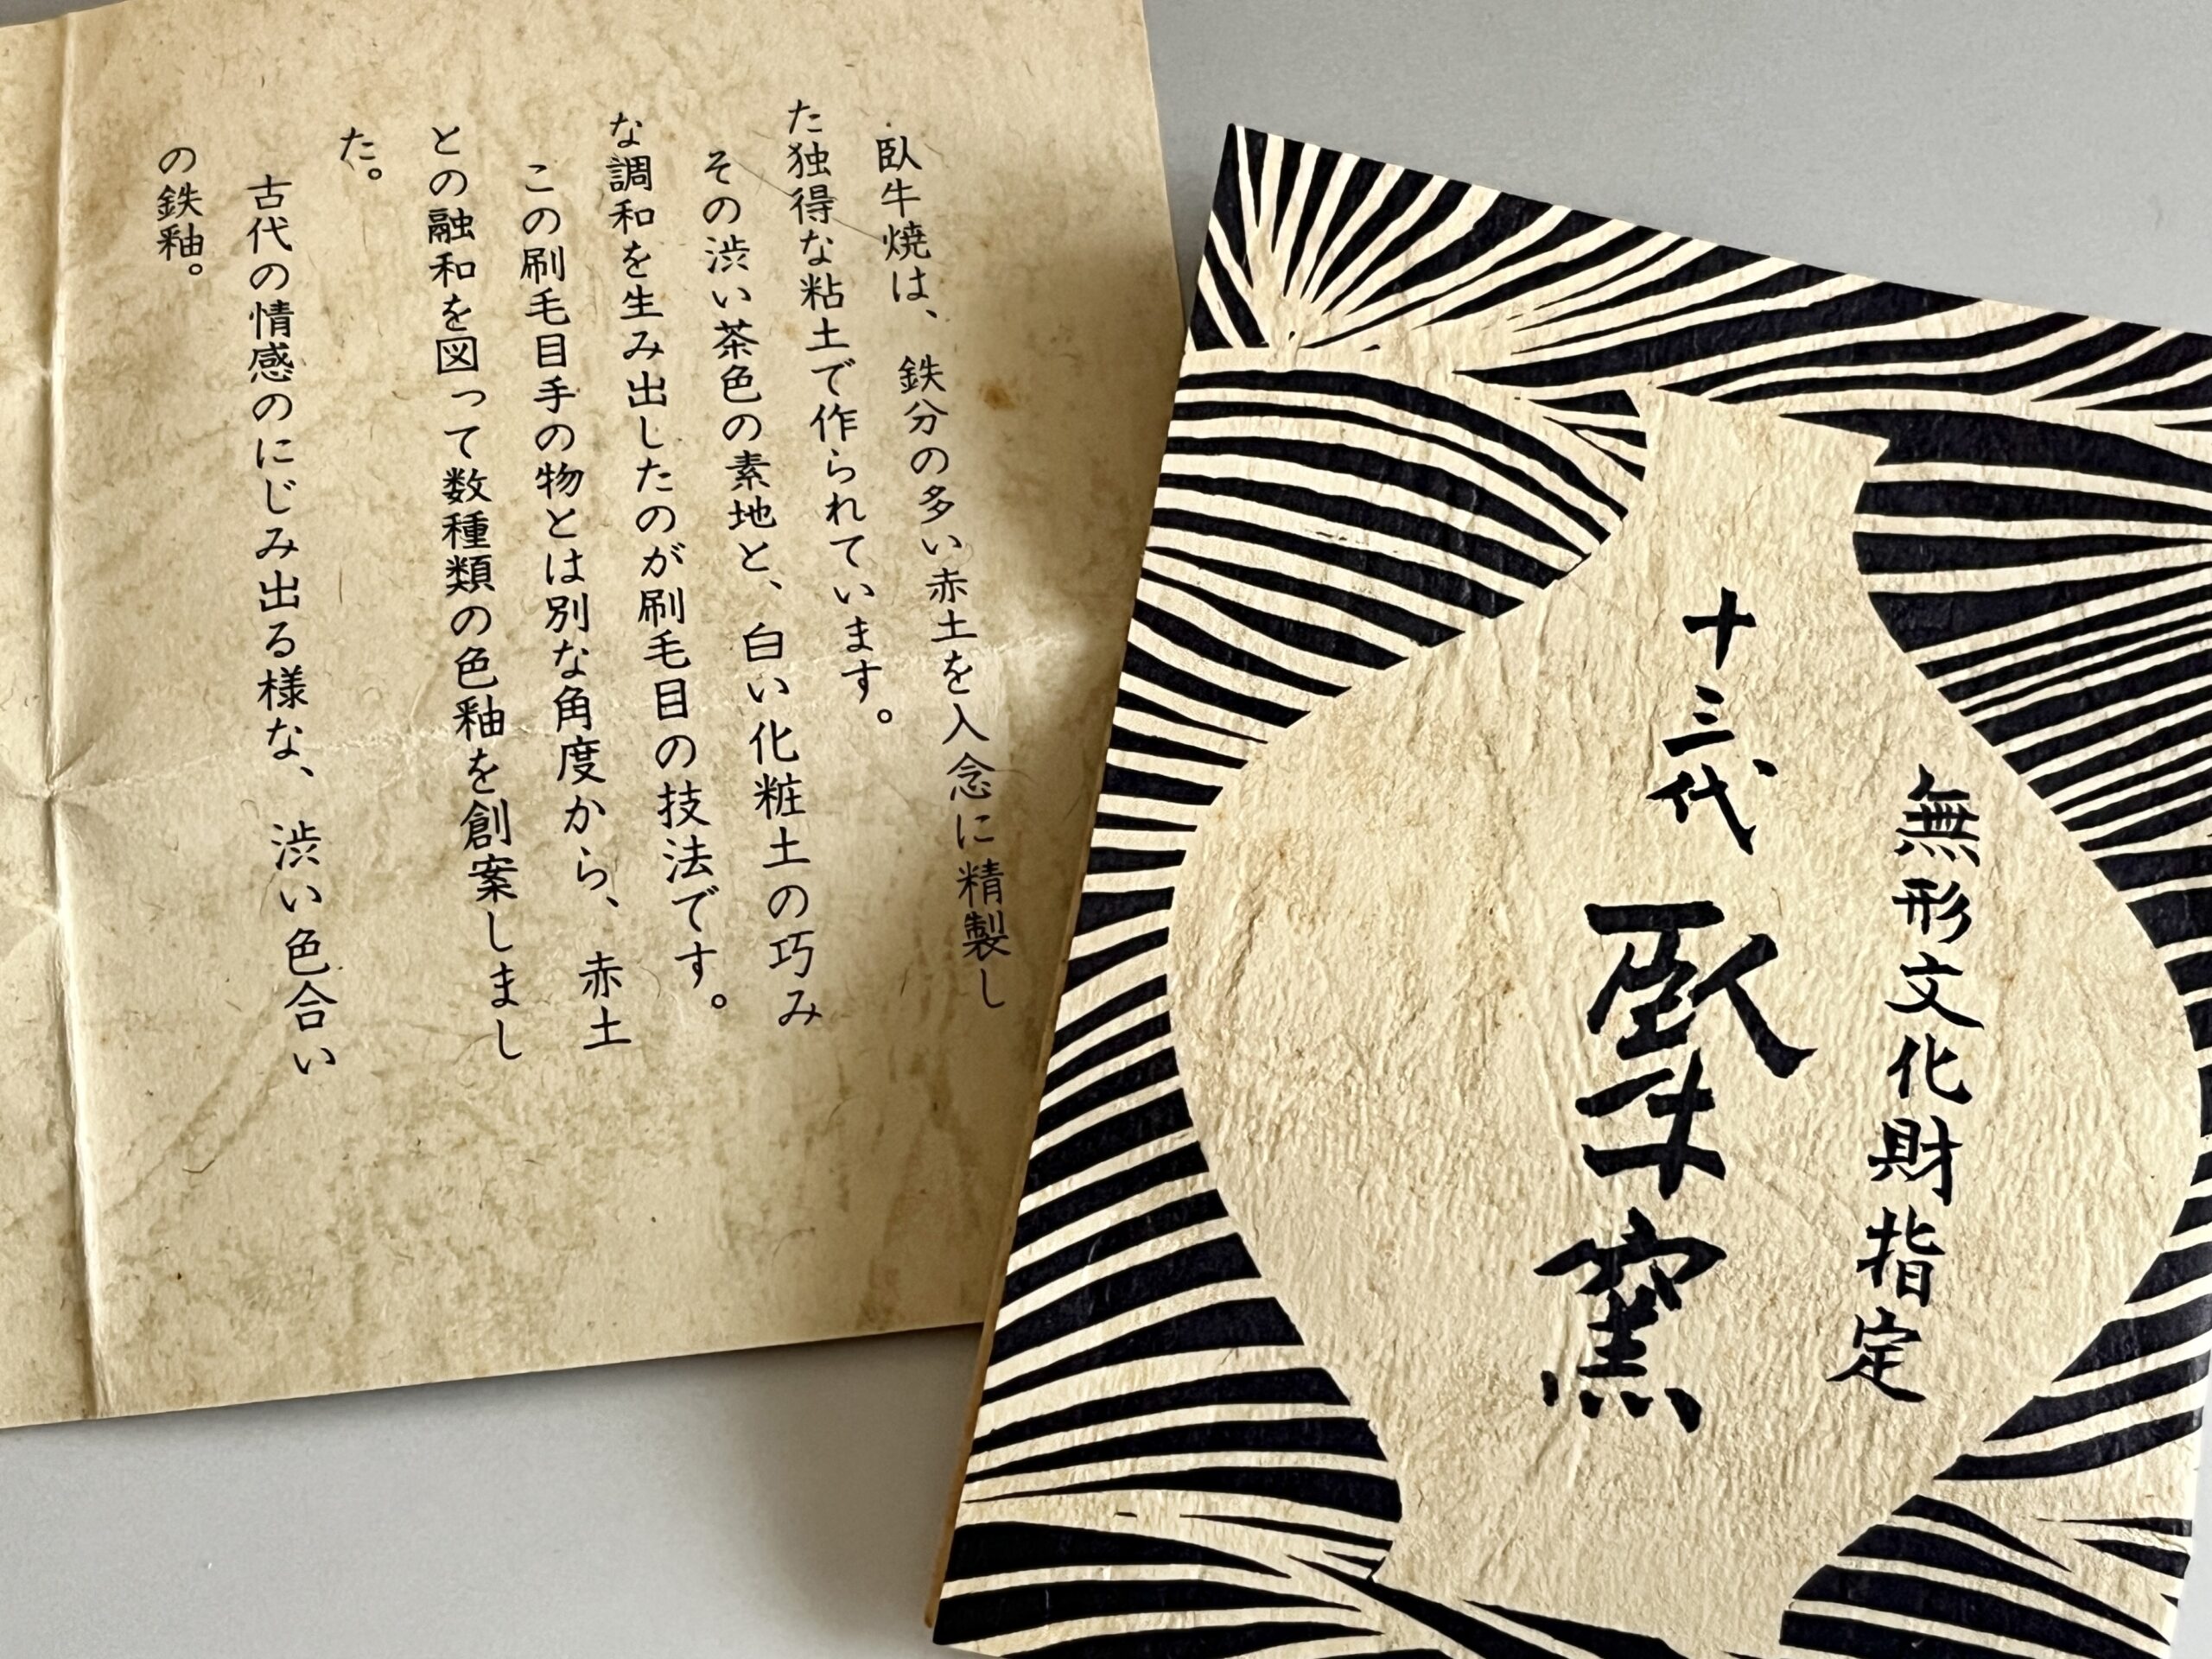 臥牛焼は、鉄分の多い赤土を入念に精製し
た独得な粘土で作られています。
その渋い茶色の素地と、白い化粧土の巧み
な調和を生み出したのが刷毛目の技法です。
この刷毛目手の物とは別な角度から、赤土
との融和を図って数種類の色釉を創案しまし
た。
古代の情感のにじみ出る様な、渋い色合い
の鉄釉。
無形文化財指定
十三代
臥牛窯